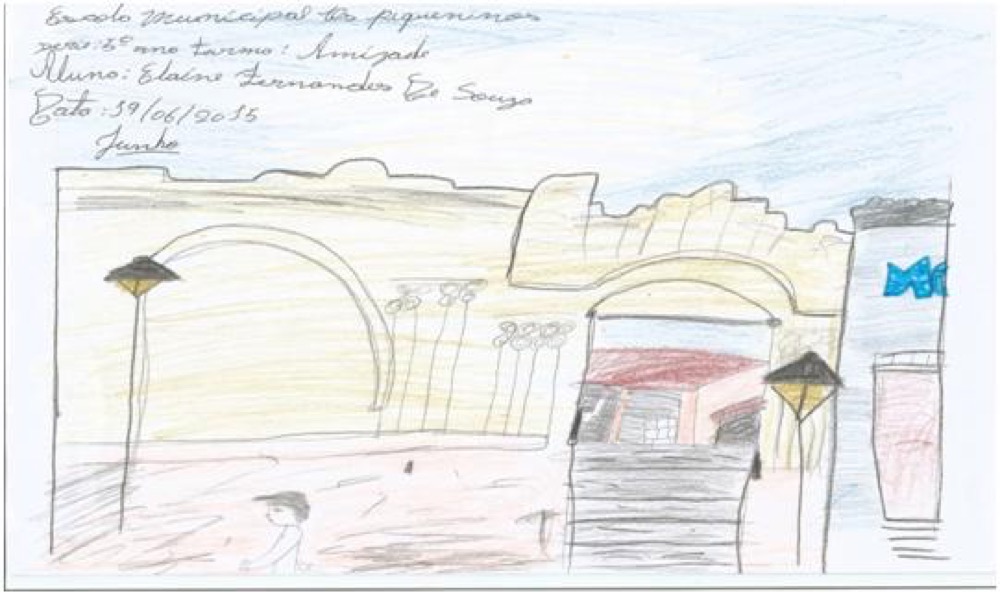 Escola Municipal Os piqueninos
serie: 5º ano turma: Amizade
Aluno: Elaine Fernandes De Souza
Data: 19/06/2015
Junho